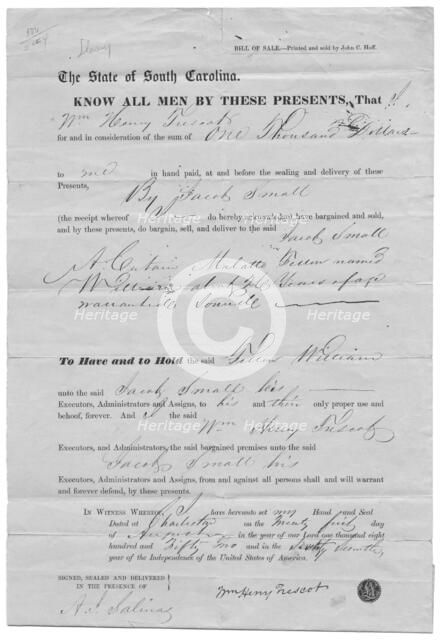 Slavery
BILL OF SALE.—Printed and sold by John C. Hoff.
The State of South Carolina.
KNOW ALL MEN BY THESE PRESENTS, That I,
Wm Henry Trescot
for and in consideration of the sum of One Thousand Dollars
to me in hand paid, at and before the sealing and delivery of these
Presents, By Jacob Small
(the receipt whereof do hereby acknowledge) have bargained and sold,
and by these presents, do bargain, sell, and deliver to the said
Jacob Small
A Certain Mulatto named
about Years of age
warranted
To Have and to Hold the said William
unto the said Jacob Small his
Executors, Administrators and Assigns, to his and their only proper use and
behoof, forever. And I the said
Wm Henry Trescot
Executors, and Administrators, the said bargained premises unto the said
Jacob Small his
Executors, Administrators and Assigns, from and against all persons shall and will warrant
and forever defend, by these presents.
IN WITNESS WHEREOF, I have hereunto set my Hand and Seal
Dated at Charleston on the Twenty first day
of in the year of our Lord one thousand eight
hundred and Fifty Two and in the Seventy Seventh
year of the Independence of the United States of America.
SIGNED, SEALED AND DELIVERED
IN THE PRESENCE OF
Wm Henry Trescot
A. J. Salinas
Heritage
Heritage
Heritage
Heritage
Heritage
Heritage